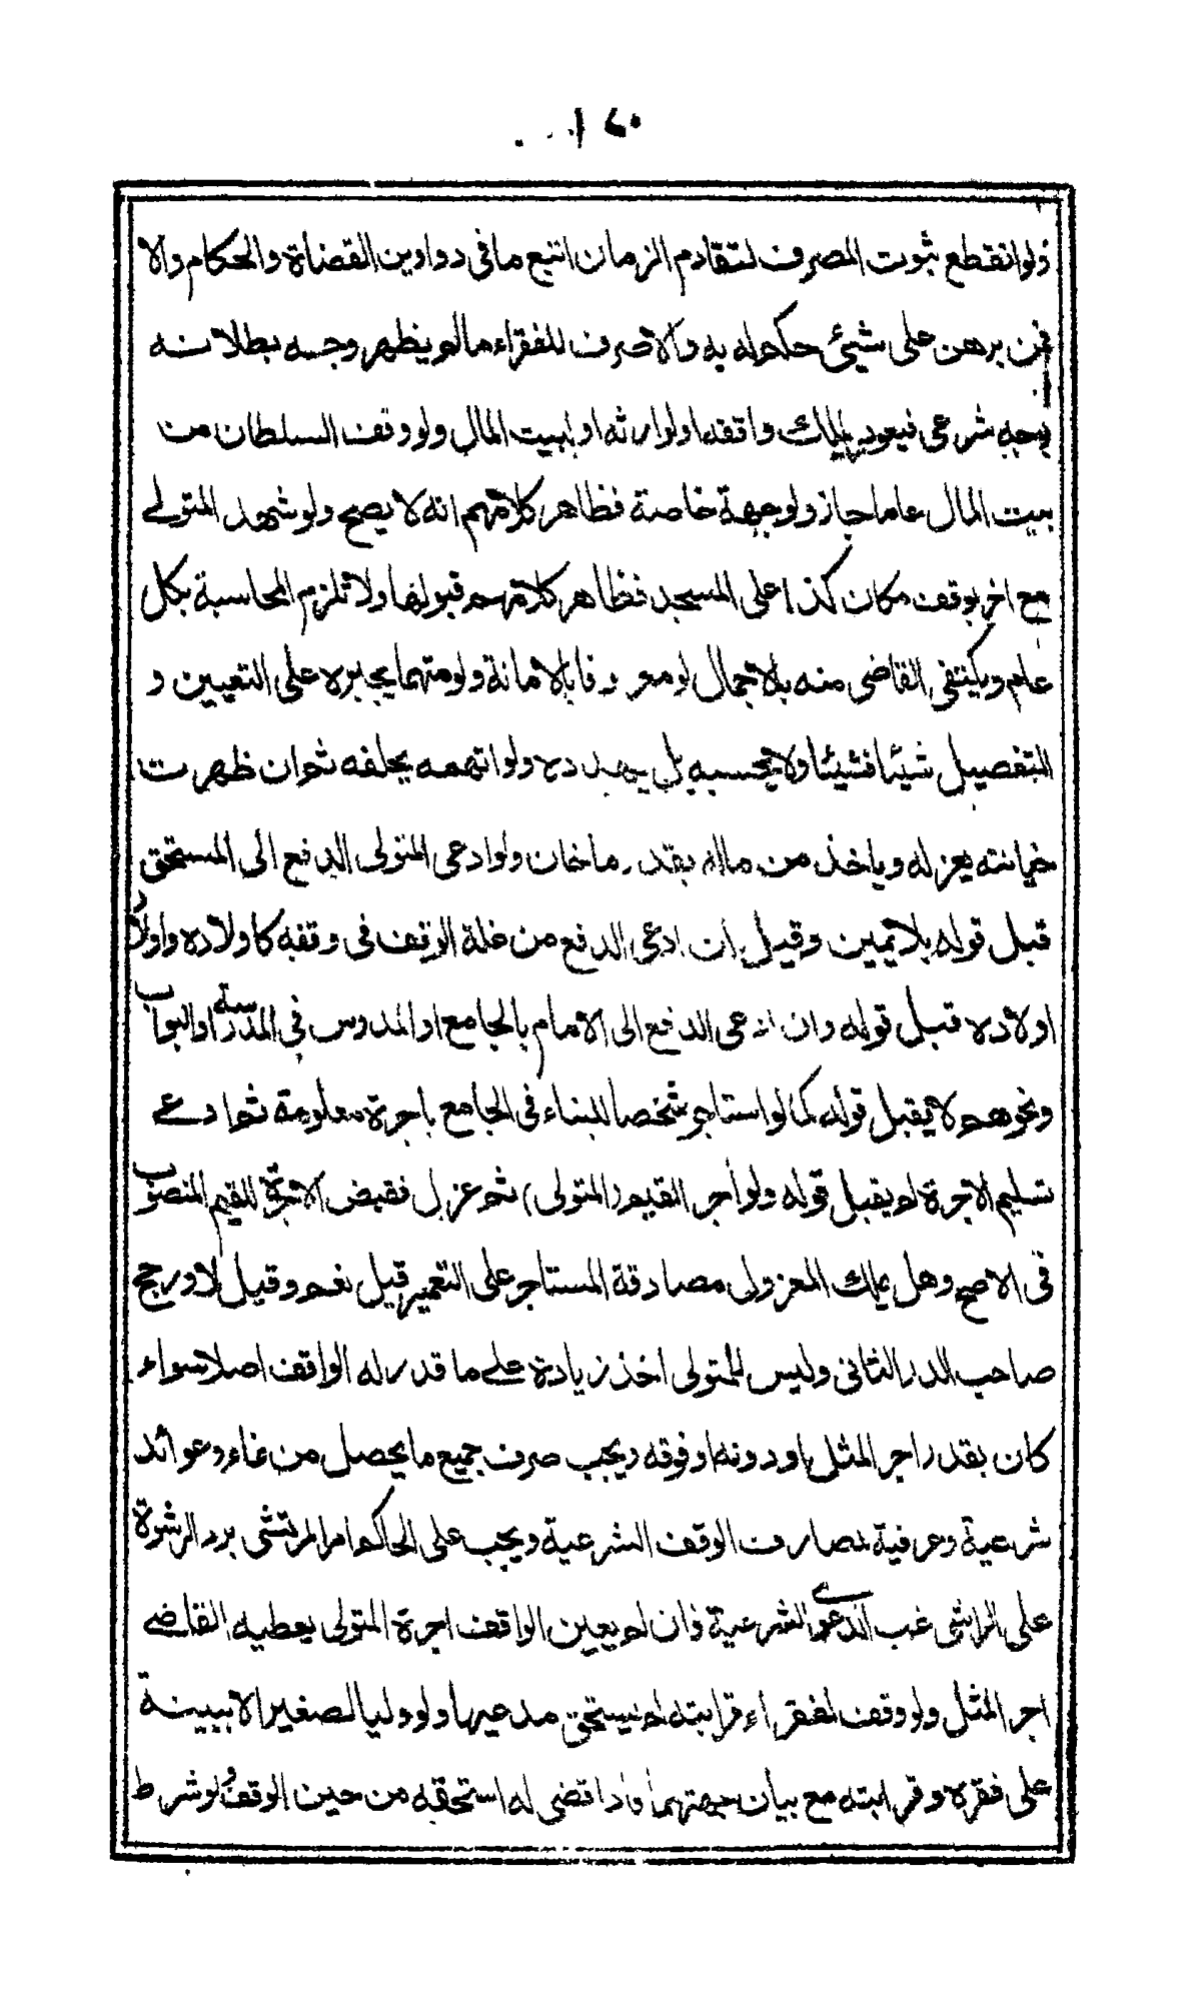 ولوانقطع ثبوت المصرف لتقادم الزمان اتبع مافى دواوين القضاة والحكام والا
فمن برهن على شيئ حكم له به والا صرف للفقراء مالم يظهر وجه بطلانه
بوجه شرعى فيعود لملك واقفه اولوارثه او لبيت المال ولو وقف السلطان من
بيت المال عاما جاز ولوجهة خاصة فظاهر كلامهم انه لا يصح ولو شهد المتولے
مع اخر بوقف مكان كذا على المسجد فظاهر كلامهم قبولها ولا تلزم المحاسبة بكل
عام ويكتفى القاضى منه بالاجمال لو معروفا بالامانة ولو متهما يجبره على التعيين و
التفصيل شيئا فشيئا ولا يحبسه بل يهدده ولو اتهمه يحلفه ثم ان ظهرت
خيانته يعزله وياخذ من ماله بقدر ماخان ولوادعى المتولى الدفع الى المستحق
قبل قوله بلا يمين وقيل ان ادعى الدفع من غلة الوقف فى وقفه كاولاده واولاد
اولاده قبل قوله وان ادعى الدفع الى الامام بالجامع او المدرس فى المدرسة او البواب
ونحوهم لا يقبل قوله كما لو استاجر شخصا للبناء فى الجامع باجرة معلومة ثم ادعے
تسليم الاجرة لم يقبل قوله ولو أجر القيم (المتولى) ثم عزل فقبض الاجرة للقيم المنصوب
فى الاصح وهل يملك المعزول مصادقة المستاجر على التعمير قيل نعم وقيل لا ورجح
صاحب الدر الثانى وليس للمتولى اخذ زيادة علے ما قدر له الواقف اصلا سواء
كان بقدر اجر المثل او دونه اوفوقه ويجب صرف جميع ما يحصل من نماء وعوائد
شرعية وعرفية لمصارف الوقف الشرعية ويجب على الحاكم امر المرتشى برد الرشوة
على الراشى غب الدعوے الشرعية وان لم يعين الواقف اجرة المتولى يعطيه القاضے
اجر المثل ولو وقف لفقراء قرابته لم يستحق مدعيها ولو وليا لصغير الا ببينة
على فقره وقرابته مع بيان جهتهما واذا قضى له استحقه من حين الوقف ولو شرط